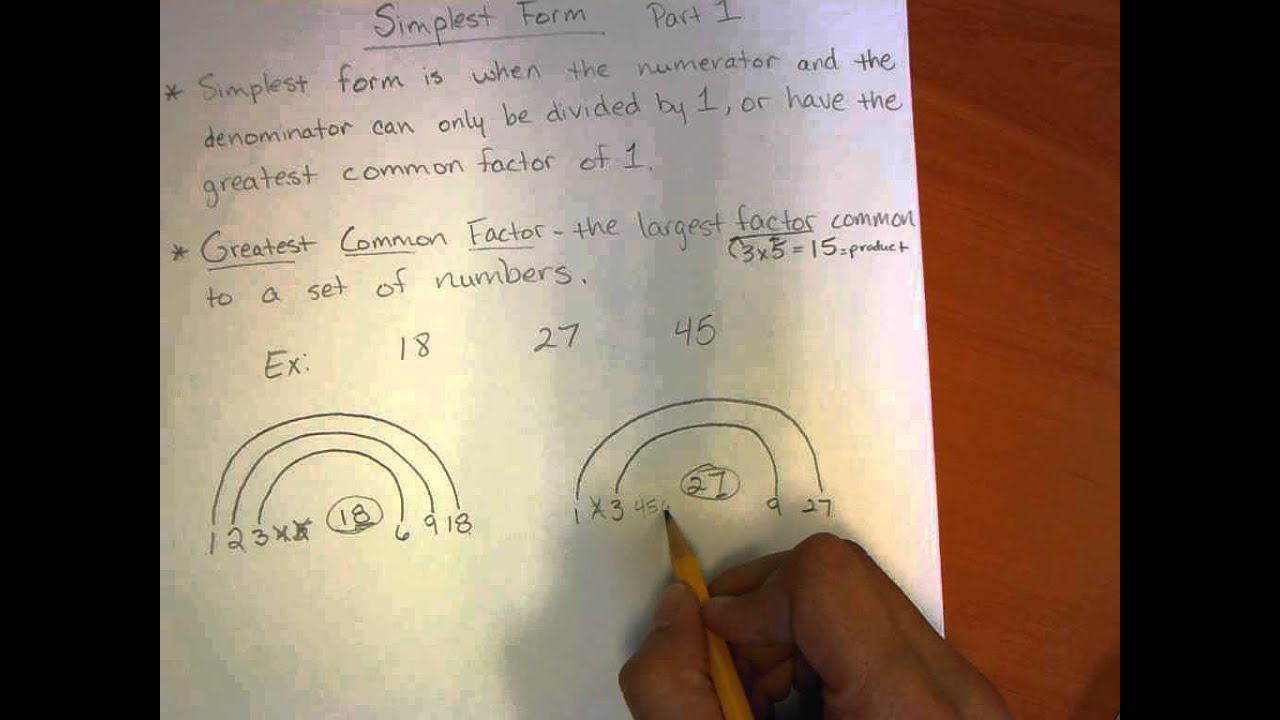 Simplest Form Part 1
* Simplest form is when the numerator and the
denominator can only be divided by 1, or have the
greatest common factor of 1.
* Greatest Common Factor - the largest factor common
(3x5 = 15 = product
to a set of numbers.
Ex: 18 27 45
18 27
1 2 3 6 9 18 1 3 4 5 9 27